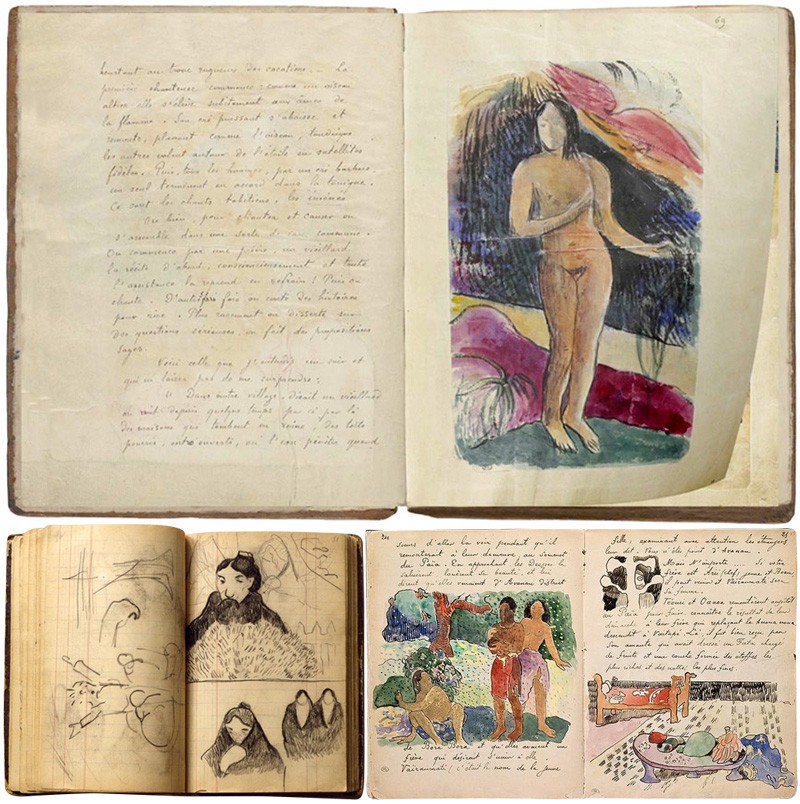 heurtant au trone rugueux des cocotiers. — La
première chanteuse commence : comme un oiseau
altier elle s'élève subitement aux âmes de
la flamme. Son cri puissant s'abaisse et
remonte, planant comme l'oiseau, tandis que
les autres volent autour de l'étoile en satellites
fidèles. Puis, tous les hommes, par un cri barbare,
un seul terminent en accord dans la tonique.
Ce sont les chants tahitiens, les iménés
Ou bien, pour chanter et causer on
s'assemble dans une sorte de case commune.
On commence par une prière, un vieillard
la récite d'abord, consciencieusement et toute
l'assistance la reprend en refrain ! Puis on
chante. D'autres fois on conte des histoires
pour rire. Plus rarement on disserte sur
des questions sérieuses, on fait des propositions
sages.
Voici celle que j'entendis un soir et
qui ne laissa pas de me surprendre :
" Dans notre village, disait un vieillard
on voit depuis quelque temps par ci par là
des maisons qui tombent en ruine ; des toits
pourris, entre ouverts, où l'eau pénètre quand
69
24
sœurs d'aller la voir pendant qu'il
remonterait à leur demeure, au sommet
du Païa. En approchant les Déesses la
saluèrent louèrent sa beauté et lui
dirent qu'elles venaient d'Avanau district
de Bora Bora et qu'elles avaient un
frère qui désirait s'unir à elle.
Vaïraumati (c'était le nom de la jeune
25
fille, examinant avec attention les étrangères
leur dit. Vous n'êtes point d'Avanau.
Mais N'importe si votre
frère est Arii (chef) jeune et beau
il peut venir et Vaïraumati sera
sa femme.
Teouri et Oaaoa remontèrent aussitôt
au Païa pour faire connaître le résultat de leur
démarche à leur frère qui replaçant
descendit à Vaitapé Là, il fut bien reçu par
son amante qui avait dressé un Fata chargé
de fruits et une couche formée des étoffes les
plus riches et des nattes les plus fines.